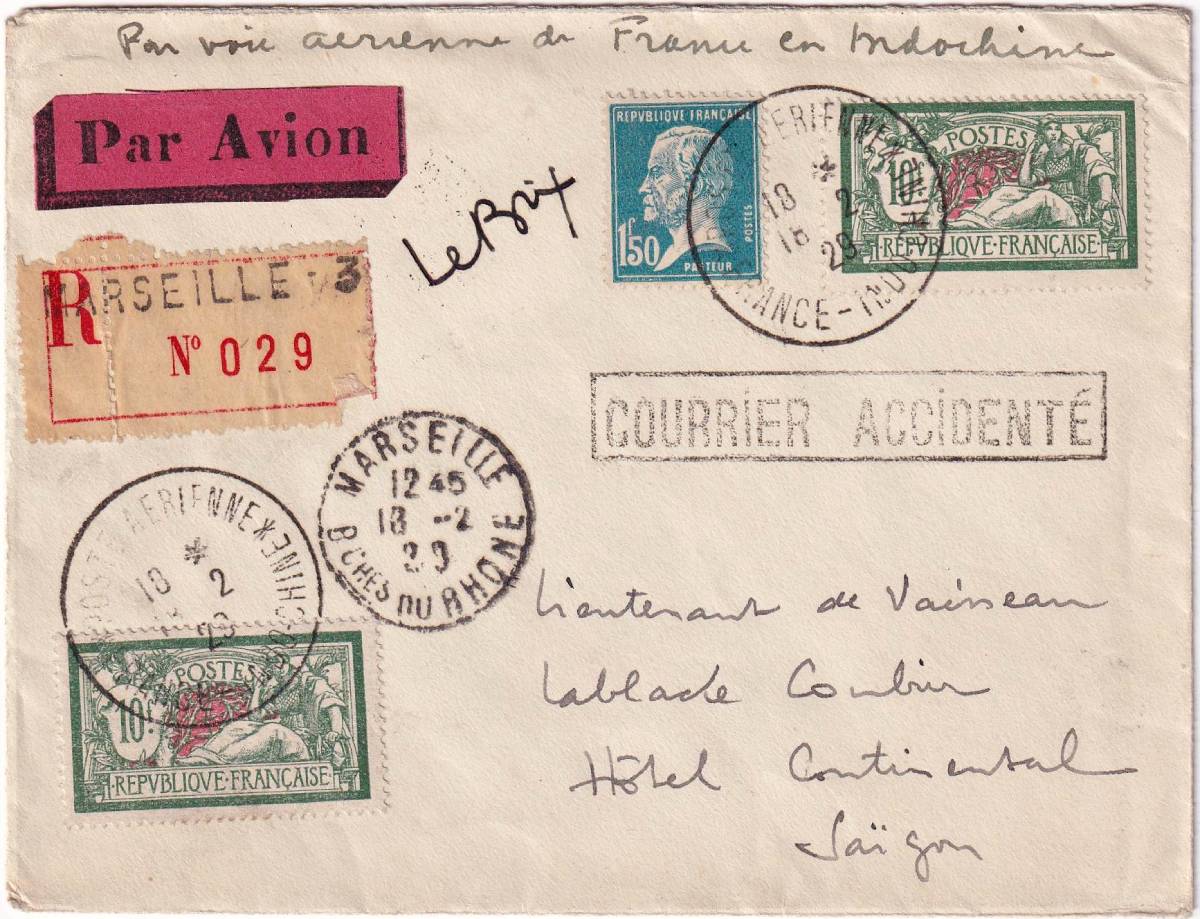 Par voie aérienne de France en Indochine
Par Avion
Le Brix
REPVBLIQUE FRANÇAISE
1F50
POSTES
PASTEUR
POSTES
10F
RÉPVBLIQVE·FRANÇAISE
AERIENNE
18 2
18 29
FRANCE-INDO
R
MARSEILLE - 3
No 029
COURRIER ACCIDENTÉ
MARSEILLE
12 45
18 -2
29
BCHES DU RHONE
POSTE AERIENNE
18 2
29
FRANCE
INDOCHINE
POSTES
10F
RÉPVBLIQVE·FRANÇAISE
Lieutenant de Vaisseau
Hôtel Continental
Saïgon